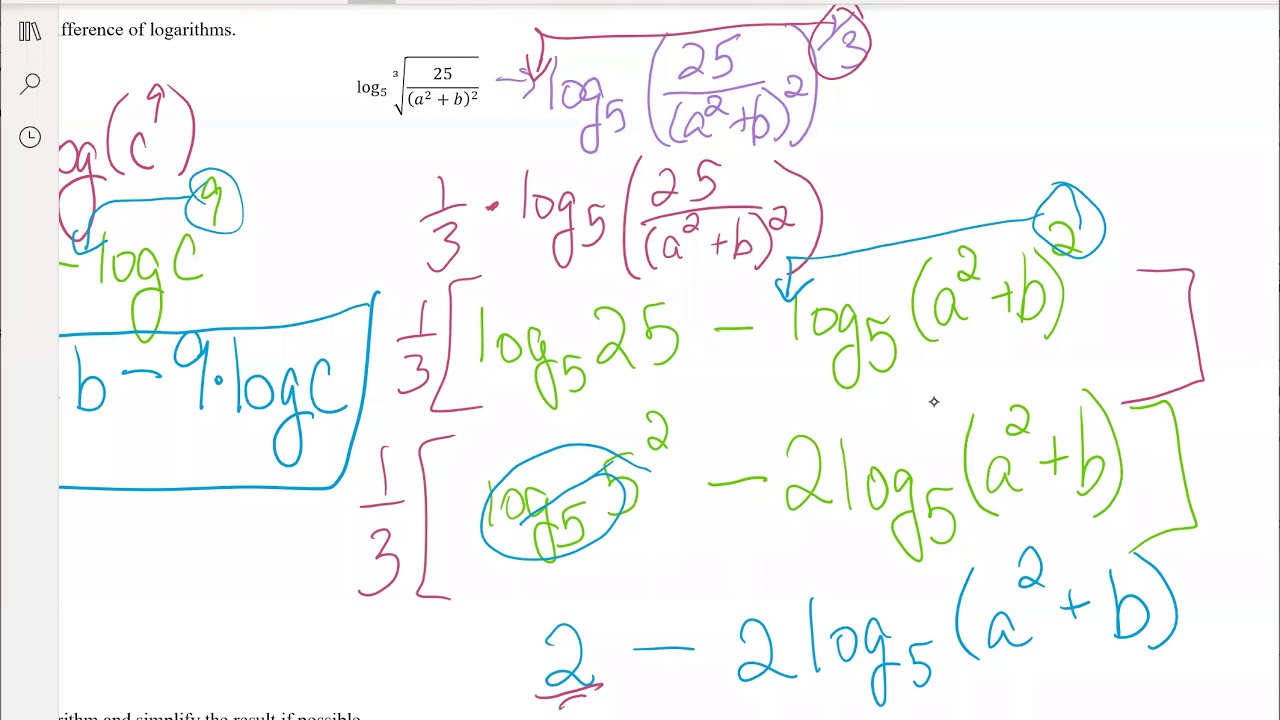 fference of logarithms.
log₅ ∛(25/(a² + b)²) → log₅ (25/(a² + b)²)^(1/3)
og(c⁹)
1/3 · log₅ (25/(a² + b)²)
9
- log c
1/3 [log₅ 25 - log₅ (a² + b)²]
b - 9 · log c
1/3 [log₅ 5² - 2 log₅ (a² + b)]
2 - 2 log₅ (a² + b)
rithm and simplify the result if possible